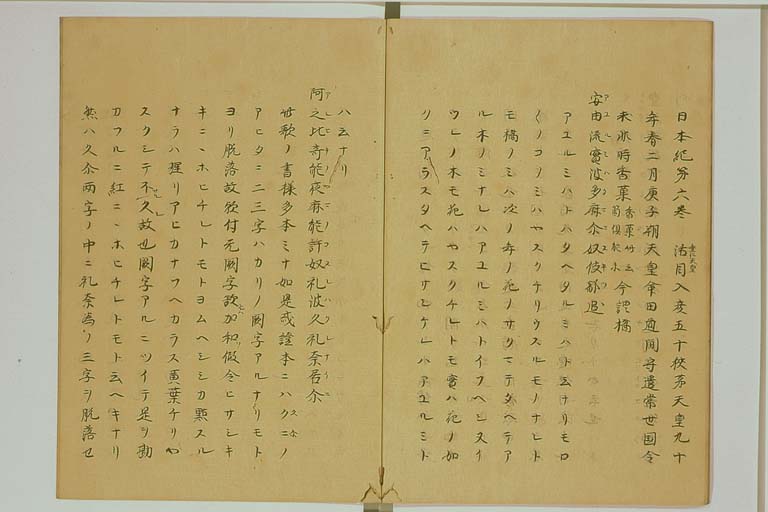 日本紀第六巻 活目入彦五十狭茅天皇九十
垂仁天皇
年春二月庚子朔天皇命田道間守遣常世国令
求非時香菓 香菓此云箇倶能未 今謂橘
安由流實波多麻尓奴伎都追
アユルミハトハタヘタルミハト云ナリモロ
〱ノコノミハヤスクナリウスルモノナレト
モ橘ノミハ次ノ年ノ花ノサクマテタヘテア
ル木ノミナレハアユルミハトイフヘシスイ
ウレノ木モ花ハヤスクチレトモ實ハ花ノ如
クニアラスタヘテヒサシケレハアユルミト
ハ云ナリ
阿之比奇能夜麻能許奴礼波久礼奈居尓
此歌ノ書様多本ミナ如是或證本ニハクニノ
アヒタニ二三字ハカリノ闕字アルナリモト
ヨリ脱落故歟付无闕字歟加和假令ヒサシキ
キニヽホヒチレトモトヨムヘシシカ點スル
ナラハ理リアヒカナフヘカラス黄葉チリヤ
スクシテ不久故也闕字アルニツイテ足ヲ勘
カフルニ紅ニヽホヒチレトモト云ヘキナリ
然ハ久尓両字ノ中ニ礼奈為ノ三字ヲ脱落セ